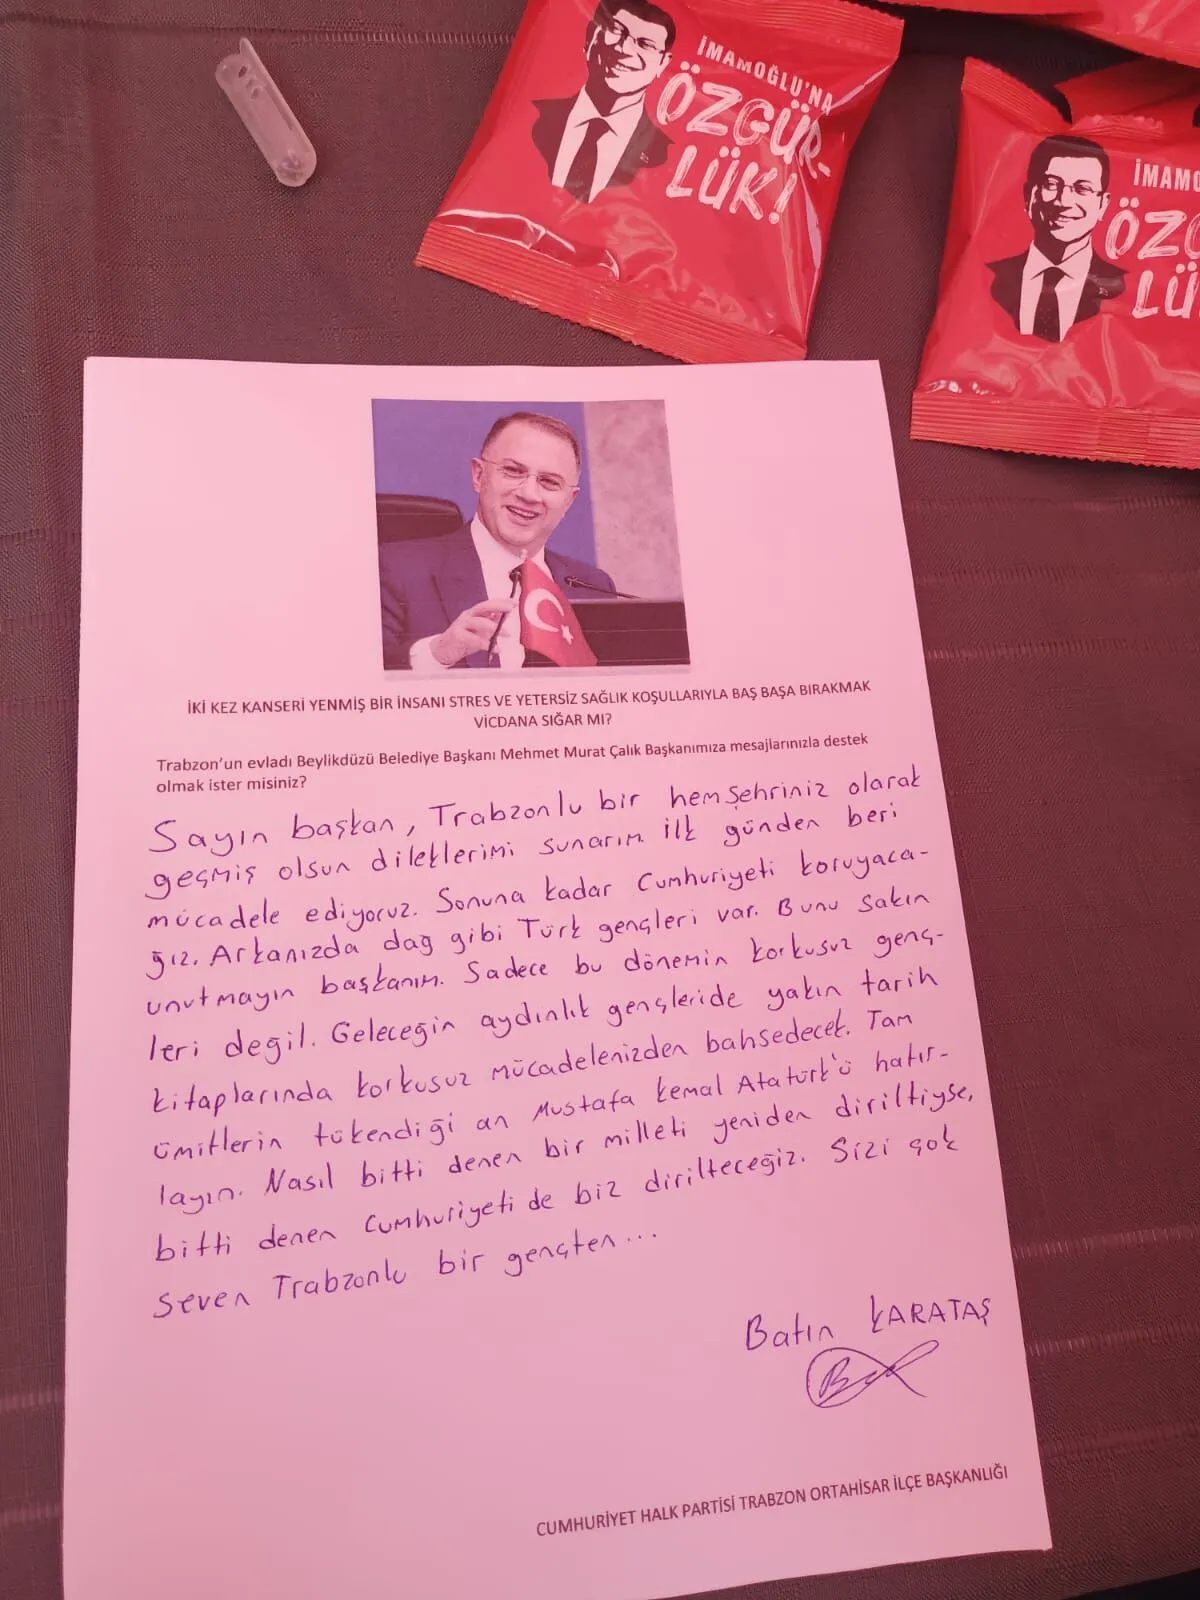 İMAMOĞLU'NA
ÖZGÜR-
LÜK!
İMAMO
ÖZG
LÜ
İKİ KEZ KANSERİ YENMİŞ BİR İNSANI STRES VE YETERSİZ SAĞLIK KOŞULLARIYLA BAŞ BAŞA BIRAKMAK
VİCDANA SIĞAR MI?
Trabzon'un evladı Beylikdüzü Belediye Başkanı Mehmet Murat Çalık Başkanımıza mesajlarınızla destek
olmak ister misiniz?
Sayın başkan, Trabzonlu bir hemşehriniz olarak
geçmiş olsun dileklerimi sunarım. İlk günden beri
mücadele ediyoruz. Sonuna kadar Cumhuriyeti koruyaca-
ğız. Arkanızda dağ gibi Türk gençleri var. Bunu sakın
unutmayın başkanım. Sadece bu dönemin korkusuz genç-
leri değil. Geleceğin aydınlık gençleride yakın tarih
kitaplarında korkusuz mücadelenizden bahsedecek. Tam
ümitlerin tükendiği an Mustafa Kemal Atatürk'ü hatır-
layın. Nasıl bitti denen bir milleti yeniden diriltiyse,
bitti denen Cumhuriyeti de biz dirilteceğiz. Sizi çok
seven Trabzonlu bir gençten...
Batın KARATAŞ
CUMHURİYET HALK PARTİSİ TRABZON ORTAHİSAR İLÇE BAŞKANLIĞI